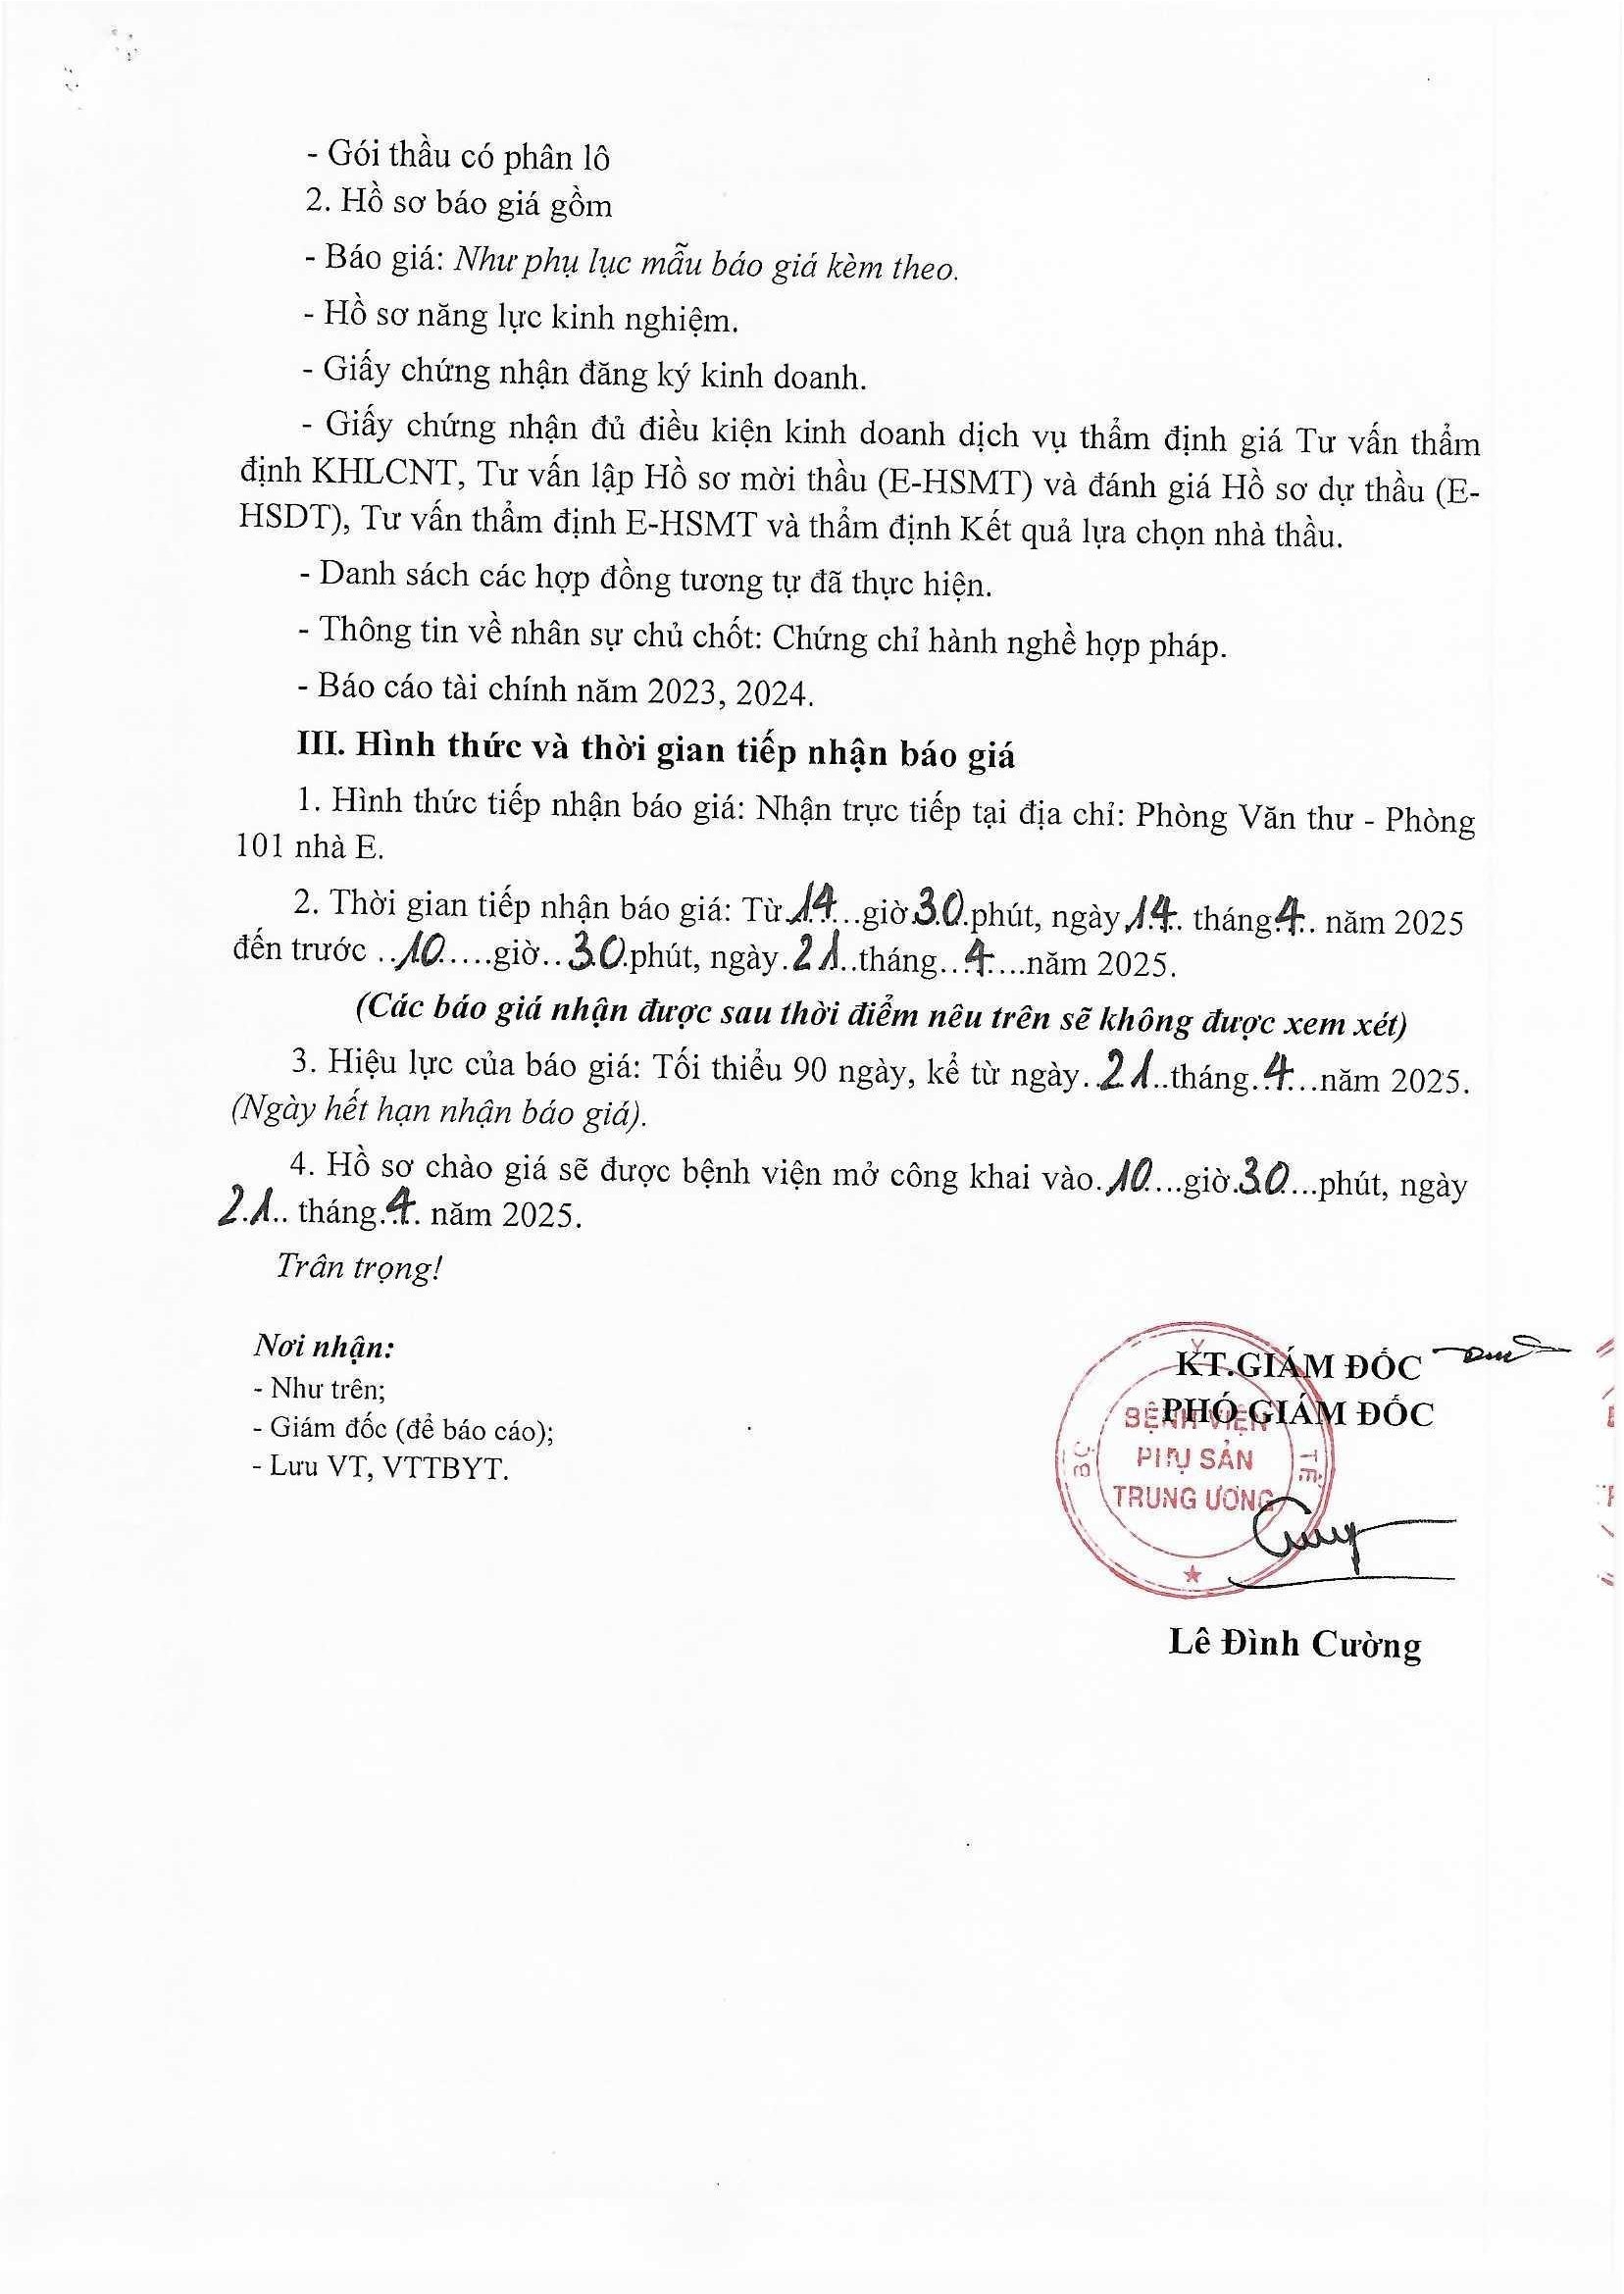 - Gói thầu có phân lô
2. Hồ sơ báo giá gồm
- Báo giá: Như phụ lục mẫu báo giá kèm theo.
- Hồ sơ năng lực kinh nghiệm.
- Giấy chứng nhận đăng ký kinh doanh.
- Giấy chứng nhận đủ điều kiện kinh doanh dịch vụ thẩm định giá Tư vấn thẩm
định KHLCNT, Tư vấn lập Hồ sơ mời thầu (E-HSMT) và đánh giá Hồ sơ dự thầu (E-
HSDT), Tư vấn thẩm định E-HSMT và thẩm định Kết quả lựa chọn nhà thầu.
- Danh sách các hợp đồng tương tự đã thực hiện.
- Thông tin về nhân sự chủ chốt: Chứng chỉ hành nghề hợp pháp.
- Báo cáo tài chính năm 2023, 2024.
III. Hình thức và thời gian tiếp nhận báo giá
1. Hình thức tiếp nhận báo giá: Nhận trực tiếp tại địa chỉ: Phòng Văn thư - Phòng
101 nhà E.
2. Thời gian tiếp nhận báo giá: Từ 14...giờ 30.phút, ngày 14.. tháng 4.. năm 2025
đến trước ..10.....giờ..30.phút, ngày.21..tháng...4....năm 2025.
(Các báo giá nhận được sau thời điểm nêu trên sẽ không được xem xét)
3. Hiệu lực của báo giá: Tối thiểu 90 ngày, kể từ ngày..21..tháng..4...năm 2025.
(Ngày hết hạn nhận báo giá).
4. Hồ sơ chào giá sẽ được bệnh viện mở công khai vào..10....giờ.30....phút, ngày
21.. tháng..4. năm 2025.
Trân trọng!
Nơi nhận:
- Như trên;
- Giám đốc (để báo cáo);
- Lưu VT, VTTBYT.
KT.GIÁM ĐỐC
PHÓ GIÁM ĐỐC
BỘ Y TẾ
BỆNH VIỆN
PHỤ SẢN
TRUNG ƯƠNG
Lê Đình Cường